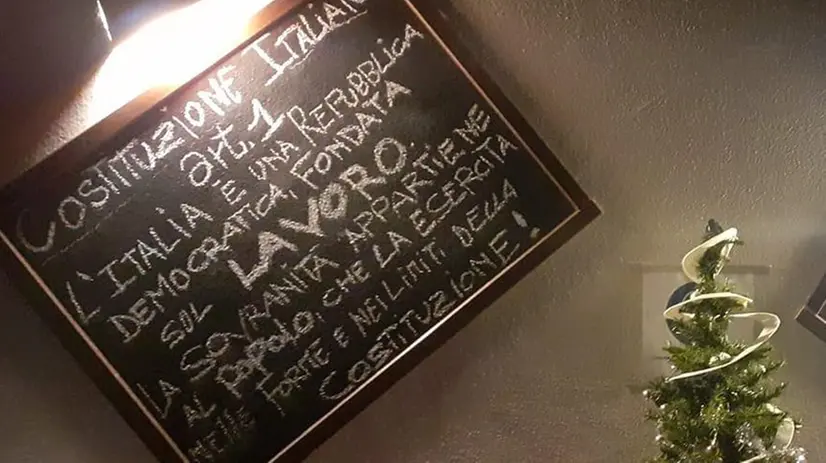 COSTITUZIONE ITALIAN
art. 1
L'ITALIA È UNA REPUBBLICA
DEMOCRATICA, FONDATA
SUL LAVORO.
LA SOVRANITÀ APPARTIENE
AL POPOLO, CHE LA ESERCITA
NELLE FORME E NEI LIMITI DELLA
COSTITUZIONE!